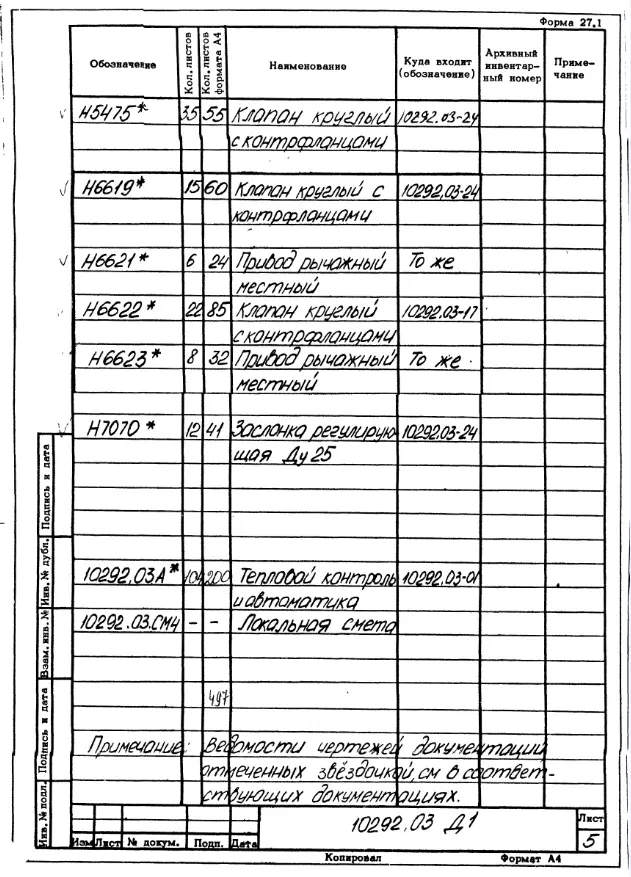 Форма 27.1
Обозначение Кол. листов Кол. листов формата А4 Наименование Куда входит (обозначение) Архивный инвентар-ный номер Приме-чание
Н5475* 35 55 Клапан круглый 10292.03-24
с контрфланцами
Н6619* 15 60 Клапан круглый с 10292.03-24
контрфланцами
Н6621* 6 24 Привод рычажный То же
местный
Н6622* 22 85 Клапан круглый 10292.03-17
с контрфланцами
Н6623* 8 32 Привод рычажный То же
местный
Н7070* 12 41 Заслонка регулирую 10292.03-24
щая Ду 25
10292.03А* 104 200 Тепловой контроль 10292.03-01
и автоматика
10292.03.СМ4 - - Локальная смета
497
Примечание: Ведомости чертежей документаций
отмеченных звёздочкой, см в соответ-
ствующих документациях.
Инв.№ подл. Подпись и дата Взам. инв. № Инв. № дубл. Подпись и дата
10292.03 Д1
Лист
5
Изм Лист № докум. Подп. Дата
Копировал Формат А4